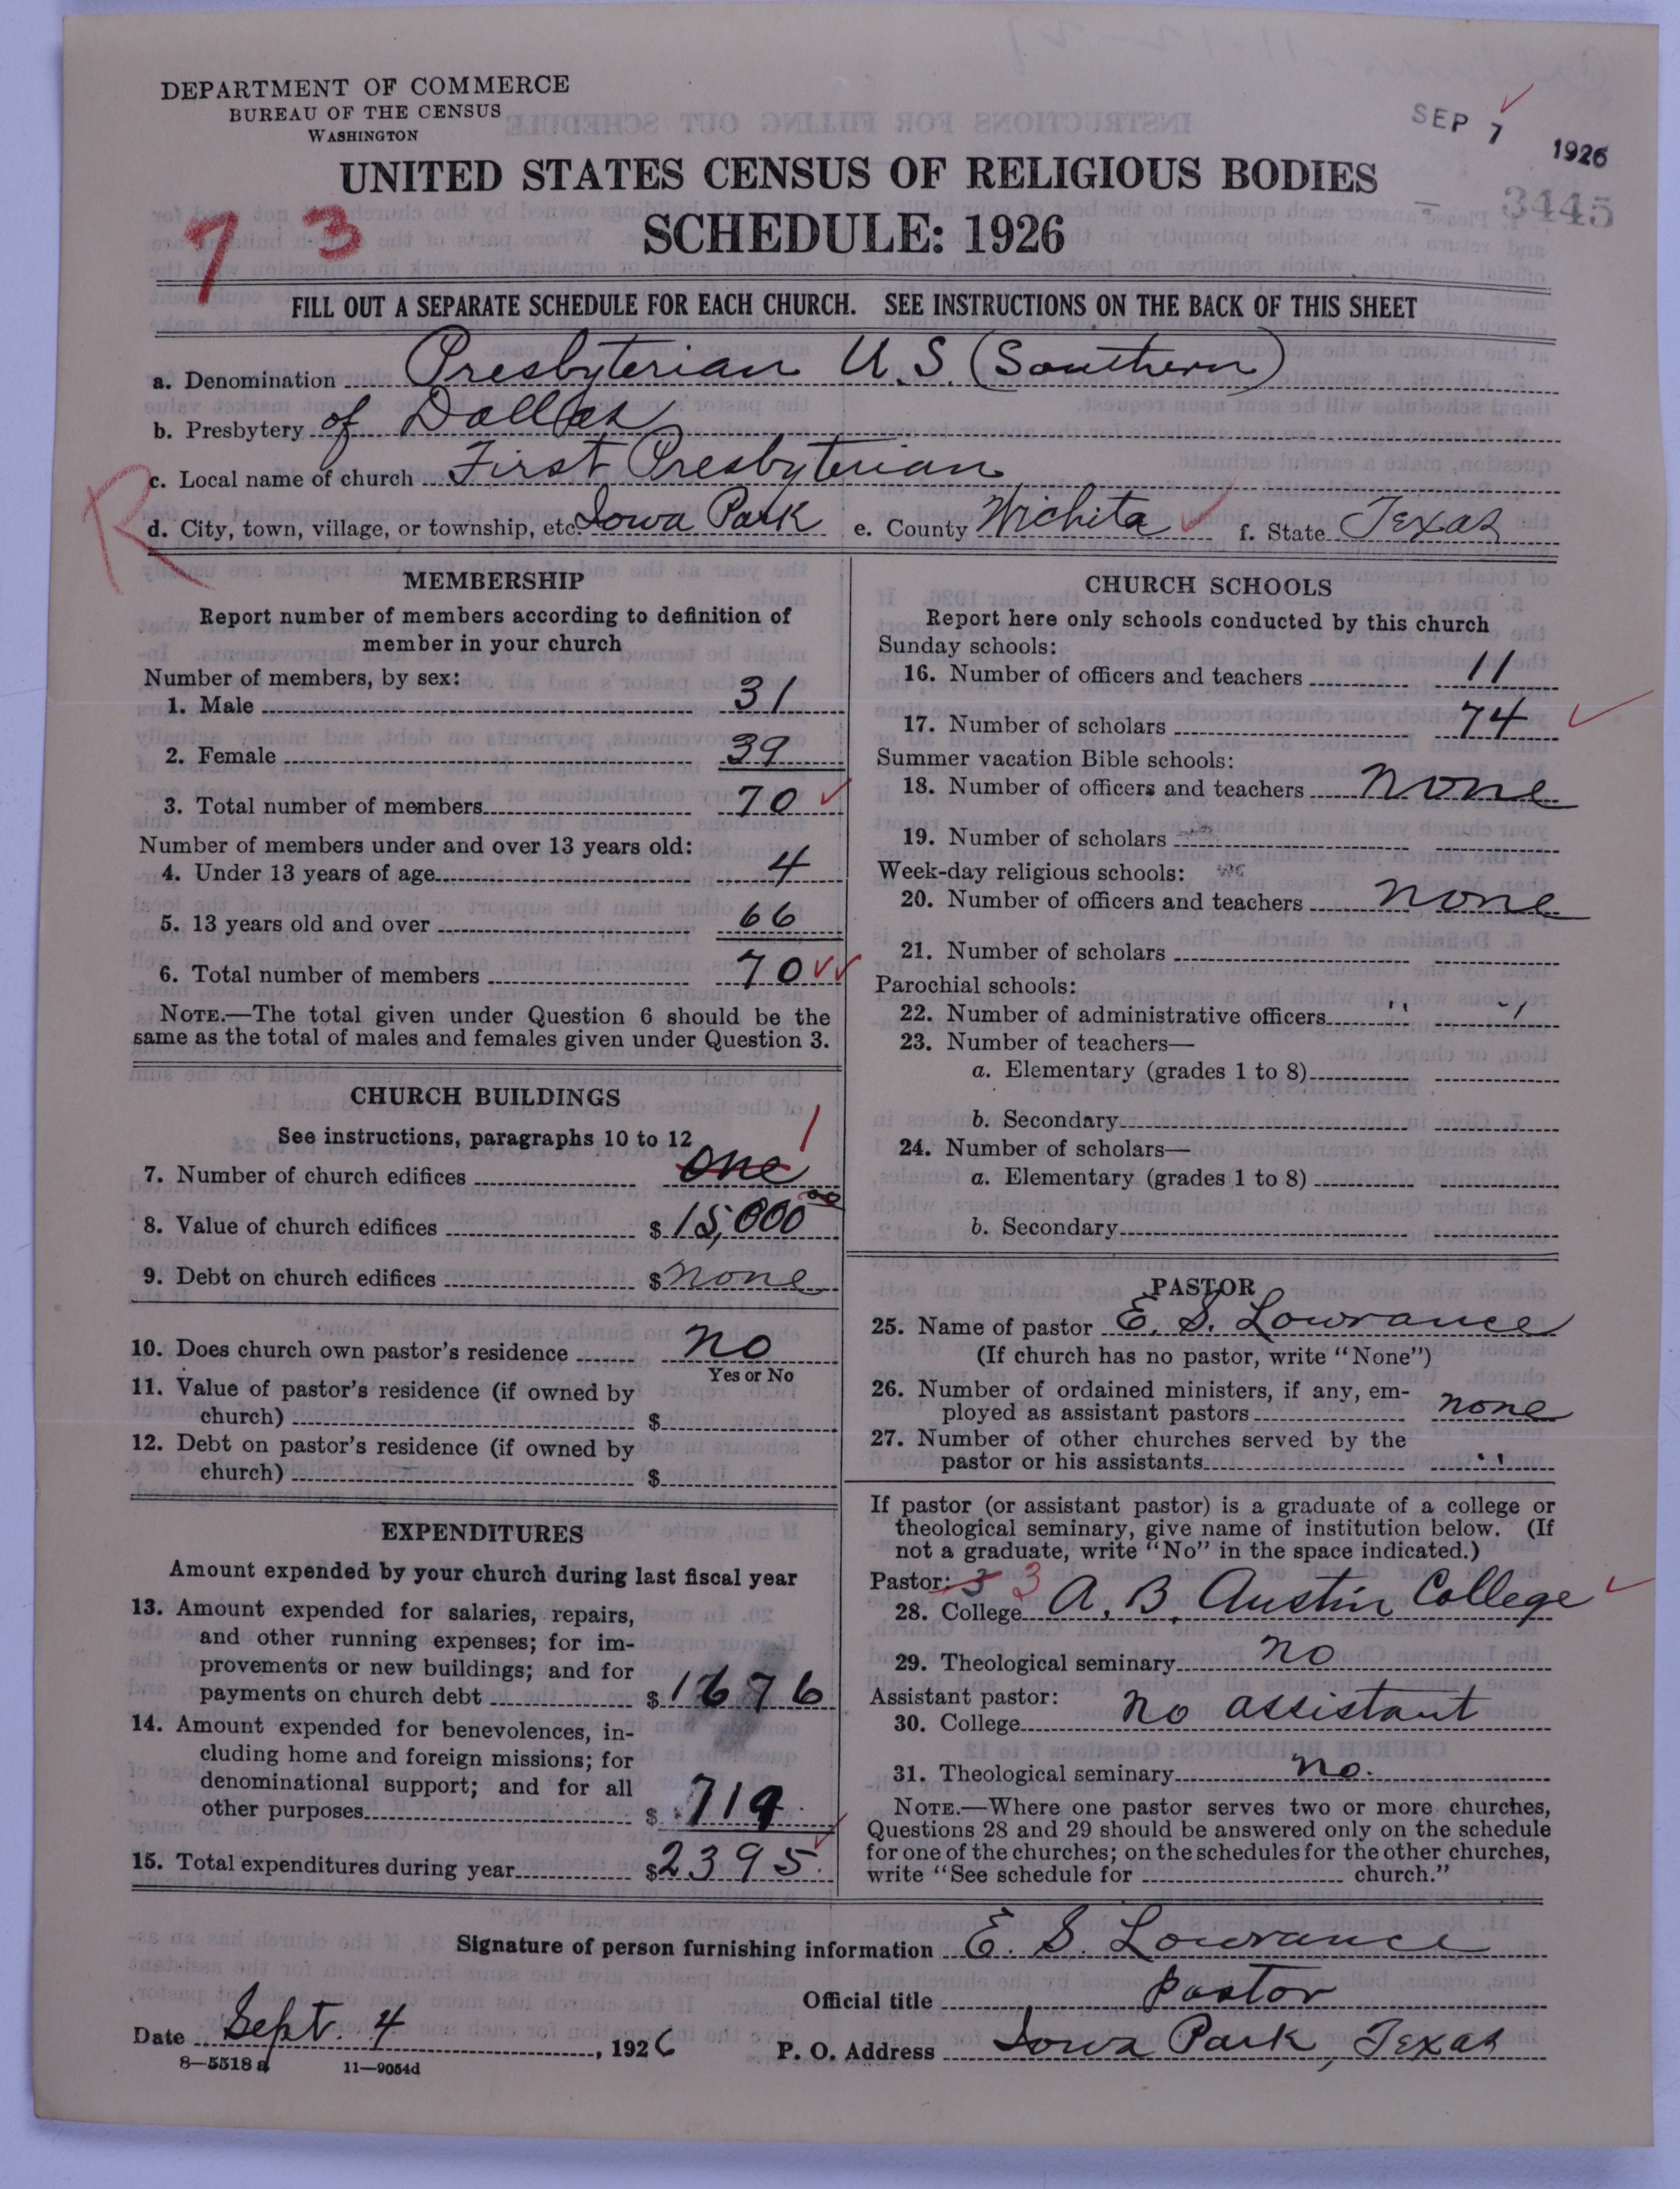 DEPARTMENT OF COMMERCE
BUREAU OF THE CENSUS
WASHINGTON
SEP 7 1926
3445
UNITED STATES CENSUS OF RELIGIOUS BODIES
SCHEDULE: 1926
73
FILL OUT A SEPARATE SCHEDULE FOR EACH CHURCH. SEE INSTRUCTIONS ON THE BACK OF THIS SHEET
a. Denomination Presbyterian U.S. (Southern)
b. Presbytery of Dallas
c. Local name of church First Presbyterian
R
d. City, town, village, or township, etc. Iowa Park e. County Wichita f. State Texas
MEMBERSHIP
Report number of members according to definition of
member in your church
Number of members, by sex:
1. Male 31
2. Female 39
3. Total number of members 70
Number of members under and over 13 years old:
4. Under 13 years of age 4
5. 13 years old and over 66
6. Total number of members 70
NOTE.—The total given under Question 6 should be the
same as the total of males and females given under Question 3.
CHURCH BUILDINGS
See instructions, paragraphs 10 to 12
7. Number of church edifices one 1
8. Value of church edifices $ 15,000 00
9. Debt on church edifices $ none
10. Does church own pastor's residence no
Yes or No
11. Value of pastor's residence (if owned by
church) $
12. Debt on pastor's residence (if owned by
church) $
EXPENDITURES
Amount expended by your church during last fiscal year
13. Amount expended for salaries, repairs,
and other running expenses; for im-
provements or new buildings; and for
payments on church debt $ 1676
14. Amount expended for benevolences, in-
cluding home and foreign missions; for
denominational support; and for all
other purposes $ 719
15. Total expenditures during year $ 2395
CHURCH SCHOOLS
Report here only schools conducted by this church
Sunday schools:
16. Number of officers and teachers 11
17. Number of scholars 74
Summer vacation Bible schools:
18. Number of officers and teachers none
19. Number of scholars
Week-day religious schools:
20. Number of officers and teachers none
21. Number of scholars
Parochial schools:
22. Number of administrative officers " "
23. Number of teachers—
a. Elementary (grades 1 to 8)
b. Secondary
24. Number of scholars—
a. Elementary (grades 1 to 8)
b. Secondary
PASTOR
25. Name of pastor E. S. Lowrance
(If church has no pastor, write "None")
26. Number of ordained ministers, if any, em-
ployed as assistant pastors none
27. Number of other churches served by the
pastor or his assistants "
If pastor (or assistant pastor) is a graduate of a college or
theological seminary, give name of institution below. (If
not a graduate, write "No" in the space indicated.)
Pastor: 3 3
28. College A. B. Austin College
29. Theological seminary no
Assistant pastor:
30. College no assistant
31. Theological seminary no.
NOTE.—Where one pastor serves two or more churches,
Questions 28 and 29 should be answered only on the schedule
for one of the churches; on the schedules for the other churches,
write "See schedule for church."
Signature of person furnishing information E. S. Lowrance
Official title Pastor
Date Sept. 4, 1926
P. O. Address Iowa Park, Texas
8—5518 a 11—9054d